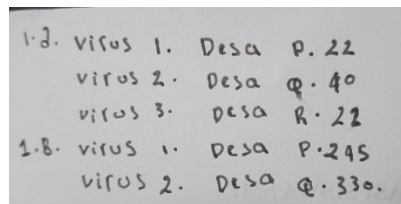 1.2. virus 1. Desa P. 22
virus 2. Desa Q. 40
virus 3. Desa R. 22
1.B. virus 1. Desa P. 245
virus 2. Desa Q. 330.